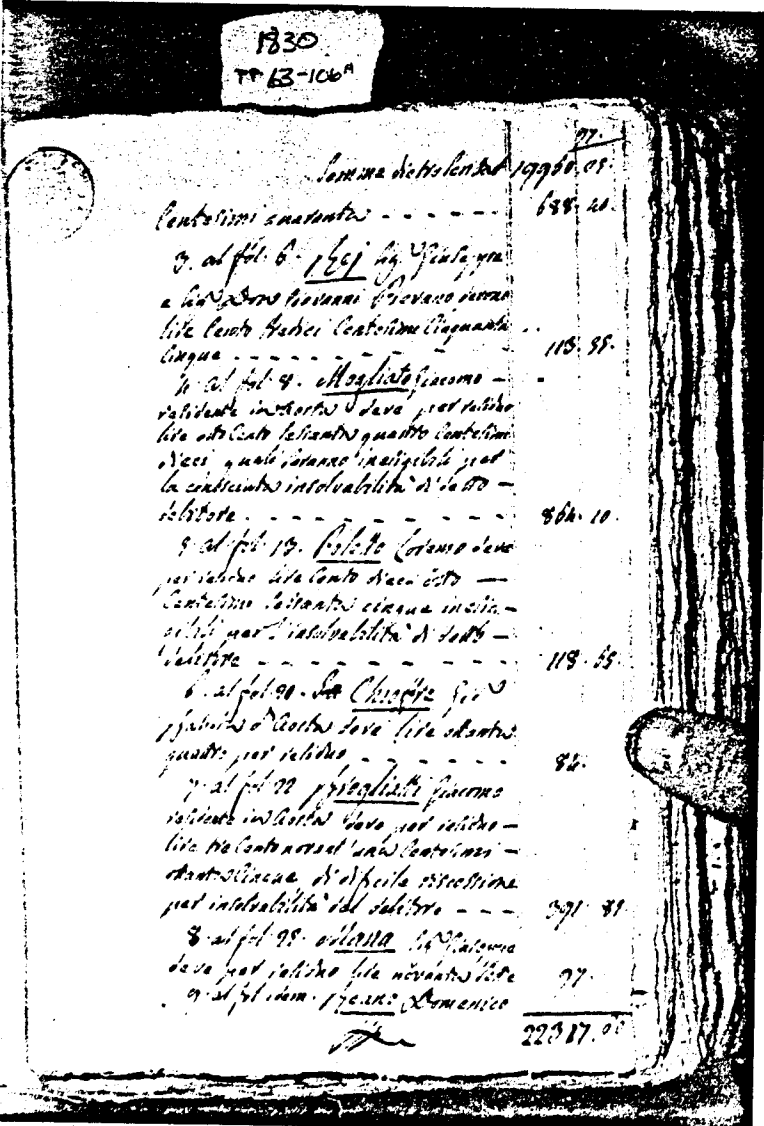 1830
PP 63-106A
97.
Somma dietro 19960. 05.
Centesimi quaranta - - - - - 688. 40.
3. al fol. 6.
e Don Giovanni
lire Cento tredici Centesimi Cinquanta
Cinque - - - - - - 113. 55.
4. al fol. 8. Mogliati Giacomo -
residente in Aosta deve per residuo
lire otto Cento sessanta quattro Centesimi
dieci quali saranno inesigibili per
la conosciuta insolvabilità di detto -
debitore - - - - - - - 864. 10.
5. al fol. 13. Lorenzo deve
per residuo lire Cento dieci otto -
Centesimi sessanta cinque inesi-
gibili per l'insolvabilità di detto -
debitore - - - - - - - 118. 65.
6. al fol. 20.
d'Aosta deve lire ottanta
quattro per residuo - - - - - 84.
7. al fol. 22 Giacomo
residente in Aosta deve per residuo -
lire tre Cento novant'una Centesimi -
ottanta Cinque di dificile riscossione
per insolvabilità del debitore - - - 391. 85
8. al fol. 25.
deve per residuo lire novanta sette 97.
9. al fol. idem. Domenico
22317.